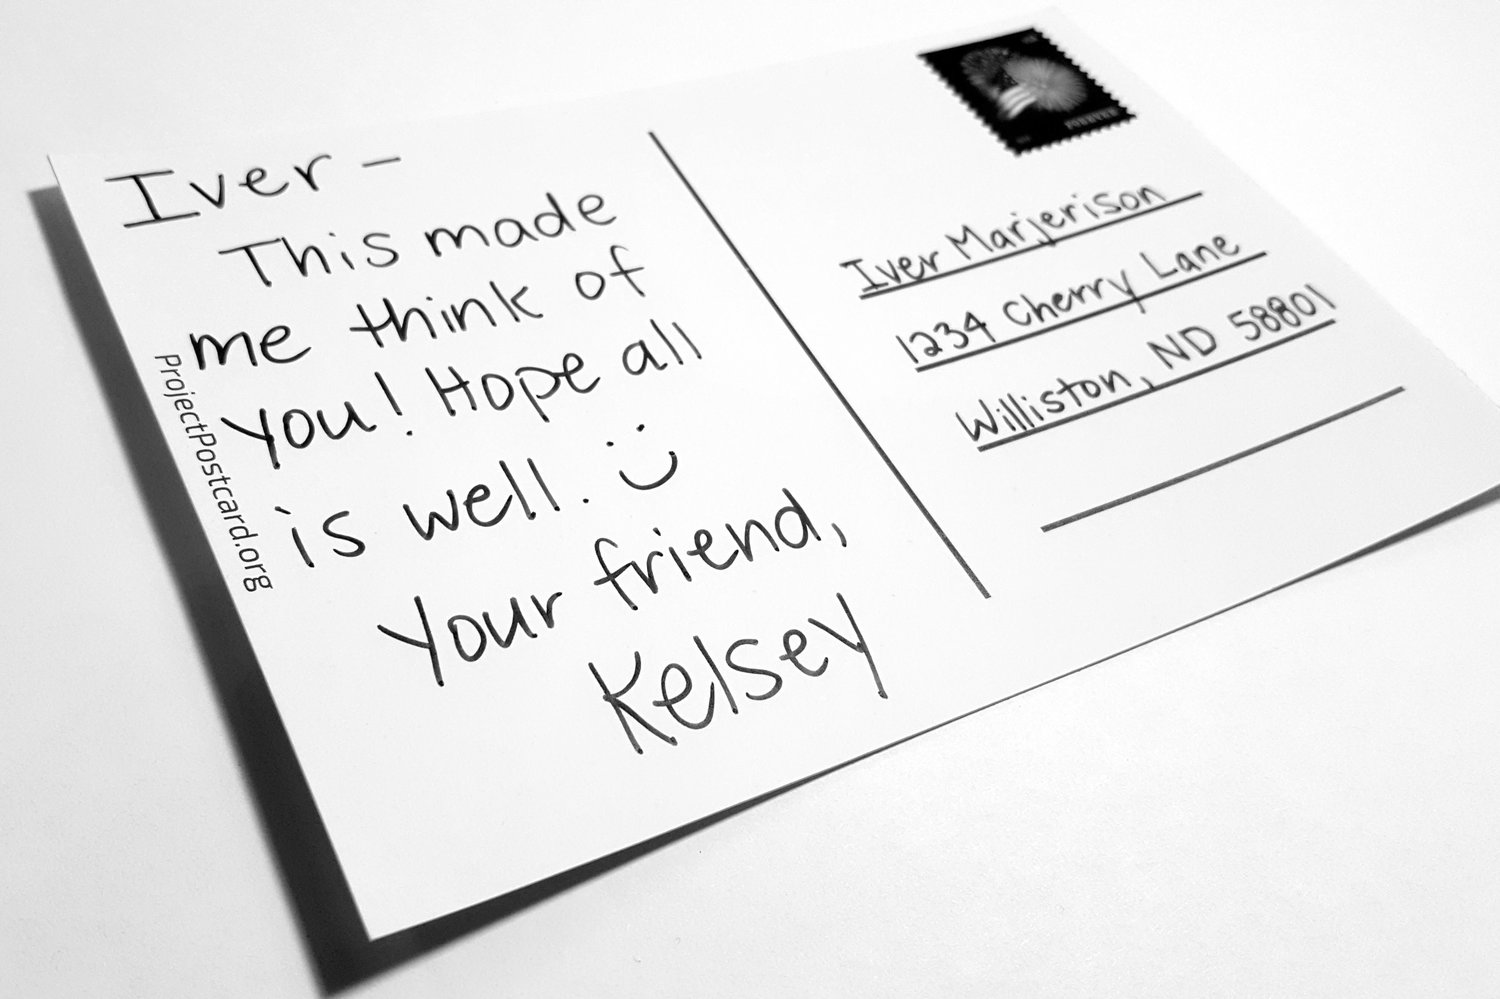 Iver -
This made
me think of
you! Hope all
is well. :)
Your friend,
Kelsey
ProjectPostcard.org
FOREVER
Iver Marjerison
1234 Cherry Lane
Williston, ND 58801